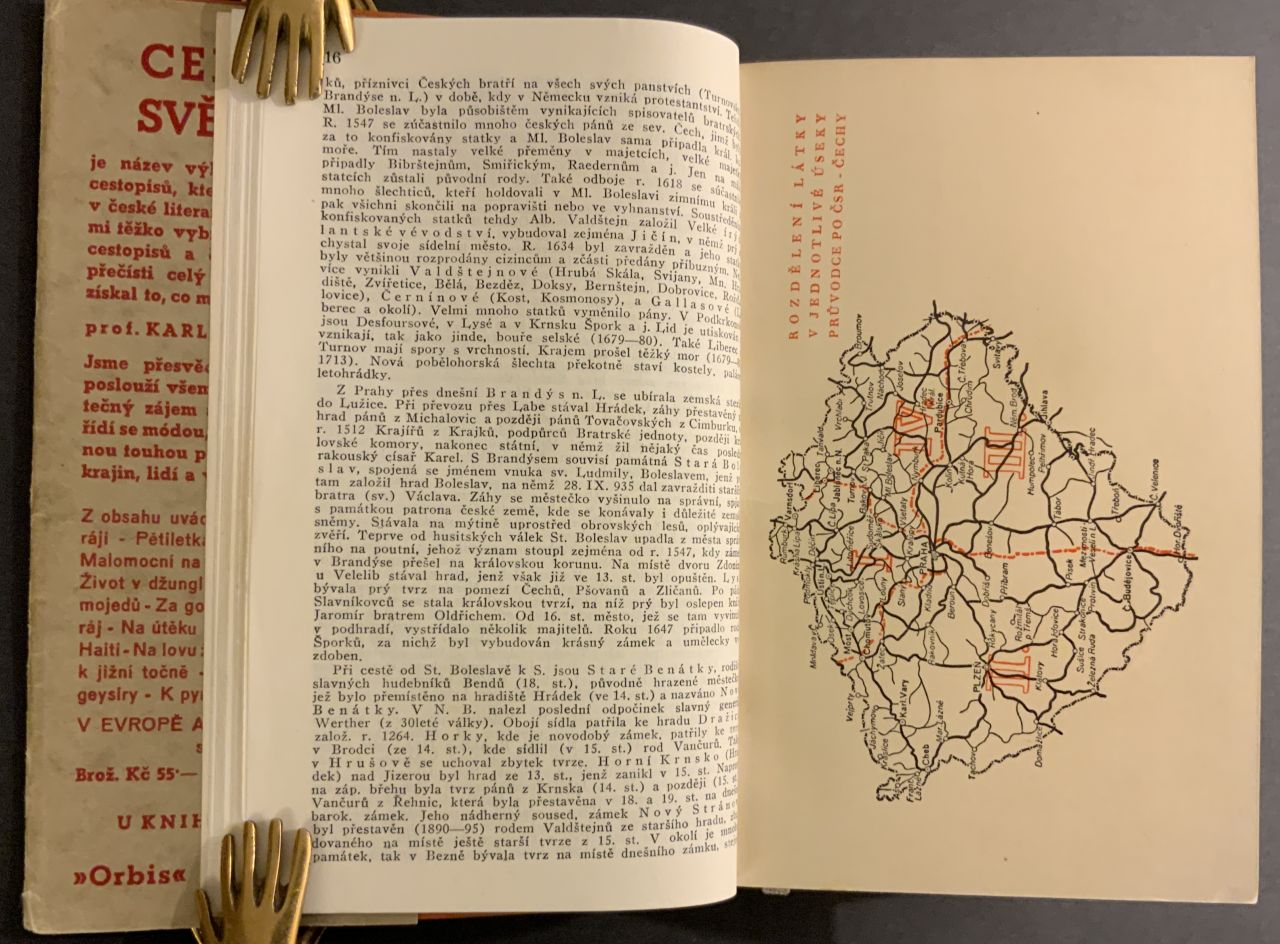 CE
SVĚ
je název vý
cestopisů, kte
v české litera
mi těžko vyb
cestopisů a
přečísti celý
získal to, co m
prof. KARL
Jsme přesvěd
poslouží všem
tečný zájem
řídí se módou,
nou touhou p
krajin, lidí a v
Z obsahu uvád
ráji - Pětiletka
Malomocní na
Život v džungl
mojedů - Za go
ráj - Na útěku
Haiti - Na lovu
k jižní točně -
geysíry - K pyr
V EVROPĚ A
Brož. Kč 55·—
U KNIH
»Orbis«
16
ků, příznivci Českých bratří na všech svých panstvích (Turnov
Brandýse n. L.) v době, kdy v Německu vzniká protestantství.
Ml. Boleslav byla působištěm vynikajících spisovatelů bratrsk
R. 1547 se zúčastnilo mnoho českých pánů ze sev. Čech, jimž
za to konfiskovány statky a Ml. Boleslav sama připadla král.
moře. Tím nastaly velké přeměny v majetcích, velké
připadly Bibrštejnům, Smiřickým, Raedernům a j. Jen na
statcích zůstali původní rody. Také odboje r. 1618 se súčastn
mnoho šlechticů, kteří holdovali v Ml. Boleslavi zimnímu králi
pak všichni skončili na popravišti nebo ve vyhnanství. Soustředěn
konfiskovaných statků tehdy Alb. Valdštejn založil Velké
lantské vévodství, vybudoval zejména Jičín, v němž
chystal svoje sídelní město. R. 1634 byl zavražděn a jeho
byly většinou rozprodány cizincům a zčásti předány příbuzným.
více vynikli Valdštejnové (Hrubá Skála, Svijany, Mn.
diště, Zvířetice, Bělá, Bezděz, Doksy, Bernštejn, Dobrovice,
lovice), Černínové (Kost, Kosmonosy), a Gallasové
berec a okolí). Velmi mnoho statků vyměnilo pány. V Podkrko
jsou Desfoursové, v Lysé a v Krnsku Špork a j. Lid je utiskován
vznikají, tak jako jinde, bouře selské (1679—80). Také Liberec
Turnov mají spory s vrchností. Krajem prošel těžký mor (1679—
1713). Nová pobělohorská šlechta překotně staví kostely,
letohrádky.
Z Prahy přes dnešní Brandýs n. L. se ubírala zemská
do Lužice. Při převozu přes Labe stával Hrádek, záhy přestavěný
hrad pánů z Michalovic a později pánů Tovačovských z Cimburku,
r. 1512 Krajířů z Krajků, podpůrců Bratrské jednoty, později
lovské komory, nakonec státní, v němž žil nějaký čas posled
rakouský císař Karel. S Brandýsem souvisí památná Stará Bo
slav, spojená se jménem vnuka sv. Ludmily, Boleslavem, jenž
tam založil hrad Boleslav, na němž 28. IX. 935 dal zavražditi starš
bratra (sv.) Václava. Záhy se městečko vyšinulo na správní,
s památkou patrona české země, kde se konávaly i důležité zem
sněmy. Stávala na mýtině uprostřed obrovských lesů, oplývajíc
zvěří. Teprve od husitských válek St. Boleslav upadla z města
ního na poutní, jehož význam stoupl zejména od r. 1547, kdy
v Brandýse přešel na královskou korunu. Na místě dvoru
u Velelib stával hrad, jenž však již ve 13. st. byl opuštěn. Ly
bývala prý tvrz na pomezí Čechů, Pšovanů a Zličanů. Po
Slavníkovců se stala královskou tvrzí, na níž prý byl oslepen
Jaromír bratrem Oldřichem. Od 16. st. město, jež se tam
v podhradí, vystřídalo několik majitelů. Roku 1647 připadlo
Šporků, za nichž byl vybudován krásný zámek a umělecky
zdoben.
Při cestě od St. Boleslavě k S. jsou Staré Benátky,
slavných hudebníků Bendů (18. st.), původně hrazené městeč
jež bylo přemístěno na hradiště Hrádek (ve 14. st.) a nazváno
Benátky. V N. B. nalezl poslední odpočinek slavný
Werther (z 30leté války). Obojí sídla patřila ke hradu Draž
založ. r. 1264. Horky, kde je novodobý zámek, patřily ke
v Brodci (ze 14. st.), kde sídlil (v 15. st.) rod Vančurů.
v Hrušově se uchoval zbytek tvrze. Horní Krnsko
dek) nad Jizerou byl hrad ze 13. st., jenž zanikl v 15. st.
na záp. břehu byla tvrz pánů z Krnska (14. st.) a později (15.
Vančurů z Řehnic, která byla přestavěna v 18. a 19. st. na
barok. zámek. Jeho nádherný soused, zámek Nový Stráno
byl přestavěn (1890—95) rodem Valdštejnů ze staršího hradu,
dovaného na místě ještě starší tvrze z 15. st. V okolí je
památek, tak v Bezně bývala tvrz na místě dnešního zámku,
ROZDĚLENÍ LÁTKY
V JEDNOTLIVÉ ÚSEKY
PRŮVODCE PO ČSR - ČECHY
Broumov
Svitavy
Č. Třebová
Josefov
Náchod
Trutnov
Vrchlabí
Chrudim
Pardubice
IV
Jičín
Tanvald
Jablonec n. N.
Liberec
Turnov
Ml. Boleslav
Nymburk
Kolín
Kutná Hora
Něm. Brod
Jihlava
III
Humpolec
Pelhřimov
Jindř. Hradec
Varnsdorf
Rumburk
Č. Lípa
Děčín
Ústí
Všetaty
Kralupy
PRAHA
Benešov
Tábor
Třeboň
Č. Velenice
Veselí n. L.
Lovosice
I
Louny
Slaný
Kladno
Beroun
Dobříš
Příbram
Písek
Protivín
Č. Budějovice
Hor. Dvořiště
Moldava
Most
Chomutov
Žatec
Rakovník
Rokycany
Rožmitál p. Třemš.
Horažďovice
Strakonice
Sušice
Železná Ruda
PLZEŇ
II
Klatovy
Vejprty
Karl. Vary
Jáchymov
Kraslice
Mar. Lázně
Cheb
Aš
Frant. Lázně
Tachov
Domažlice